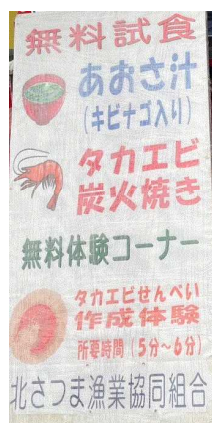 無料試食
あおさ汁
(キビナゴ入り)
タカエビ
炭火焼き
無料体験コーナー
タカエビせんべい
作成体験
所要時間(5分〜6分)
北さつま漁業協同組合